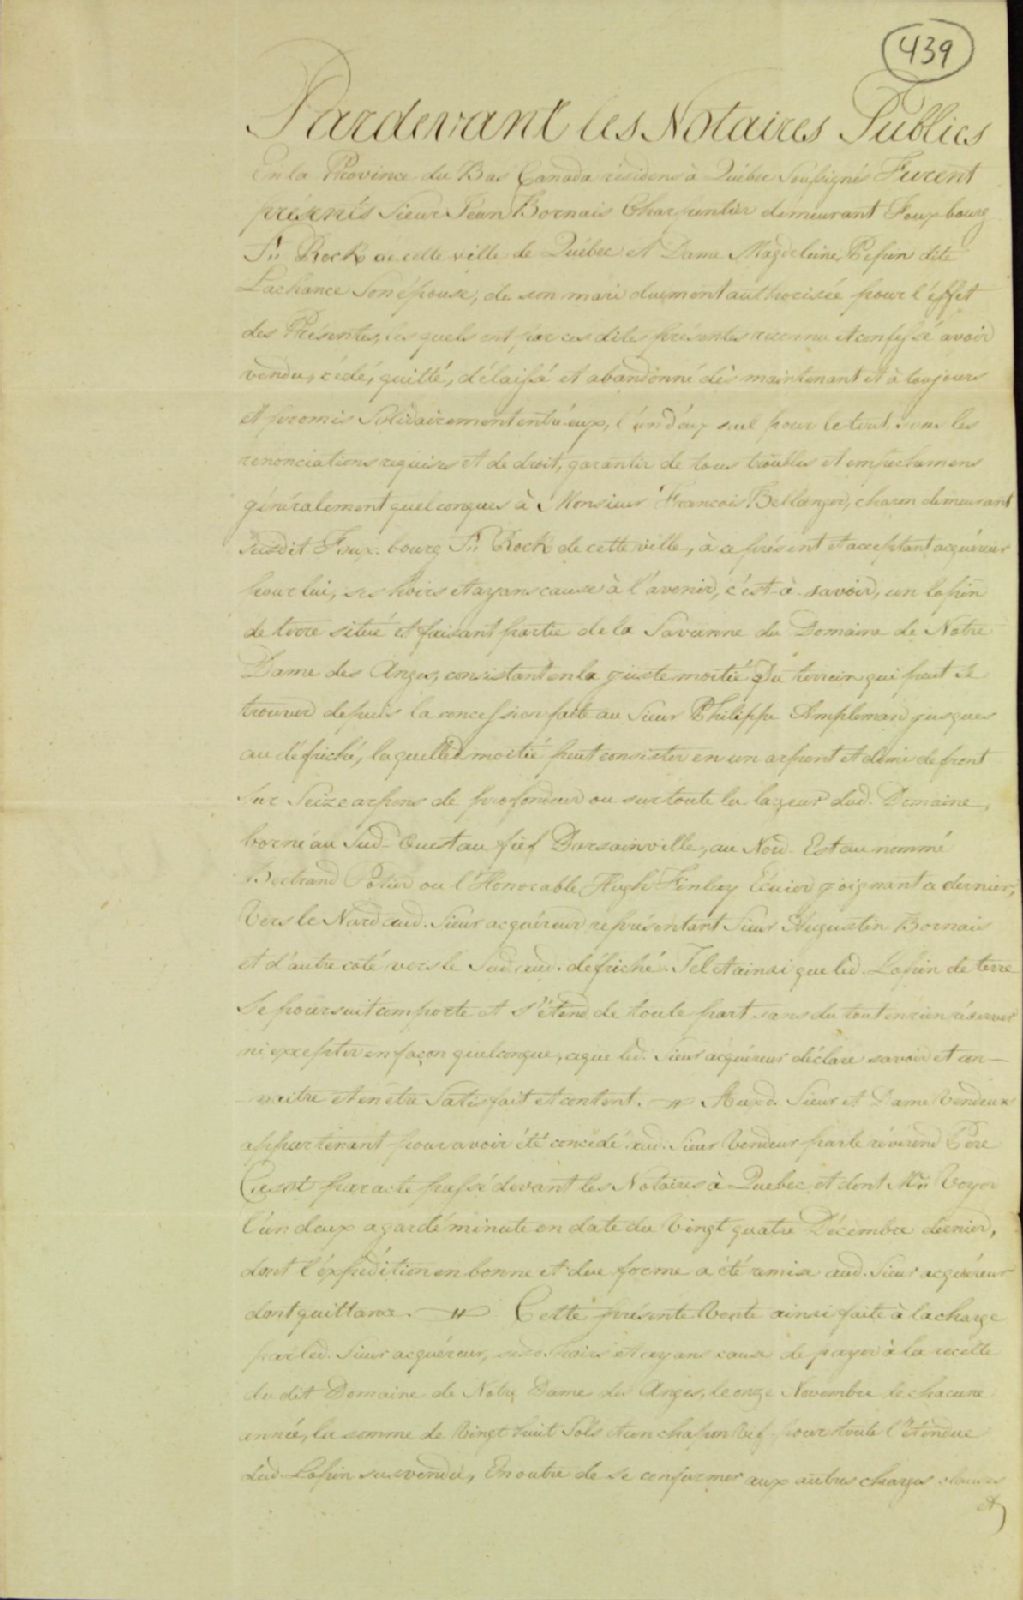 439
Pardevant les Notaires Publics
En la Province du Bas Canada résidens à Québec Soussignés Furent
presents Sieur Jean Bornais Charpentier demeurant Faux bourg
St. Rock de cette ville de Québec et Dame Magdeleine Pepin dite
Lachance Son épouse, de son mari duement authorisée pour l'éffet
des Présentes, lesquels ont par ces dites présentes reconnu et confessé avoir
vendu, cédé, quitté, délaissé et abandonné dès maintenant et à toujours
et promis Solidairement entr'eux, l'un d'eux seul pour le tout, sous les
renonciations requises et de droit, garantir de tous troubles et empêchemens
généralement quelconques à Monsieur François Bellanger, charon demeurant
susdit Faux-bourg St. Rock de cette ville, à ce présent et acceptant acquéreur
pour lui, ses hoirs et ayans cause à l'avenir, c'est-à-savoir, un lopin
de terre situé et faisant partie de la Savanne du Domaine de Notre
Dame des Anges, consistant en la juste moitié du terrein qui peut se
trouver depuis la concession faite au Sieur Philippe Amplemard jusques
au défriché, laquelle moitié peut consister en un arpent et demi de front
sur Seize arpens de profondeur ou sur toute la largeur dud. Domaine,
borné au Sud-Ouest au fief Darsainville, au Nord-Est au nommé
Bertrand Potier ou l'Honorable Hugh Finlay Ecuier joignant ce dernier,
Vers le Nord aud. Sieur acquéreur représentant Sieur Augustin Bornais
et d'autre coté vers le Sud aud. défriché. Tel et ainsi que led. Lopin de terre
Se poursuit comporte et s'étend de toute part sans du tout en rien réserver
ni excepter en façon quelconque, ce que led. Sieur acquéreur déclare savoir et con-
-noitre et en être Satisfait et content. Auxd. Sieur et Dame Vendeurs
appartenant pour avoir été concédé aud. Sieur Vendeur par le révérend Père
Casot par acte passé devant les Notaires à Quebec et dont Me. Voyer
l'un deux a gardé minute en date du Vingt quatre Décembre dernier,
dont l'éxpédition en bonne et due forme a été remise aud. Sieur acquéreur
dont quittance. Cette présente Vente ainsi faite à la charge
par led. Sieur acquéreur, sesd. hoirs et ayans cause de payer à la recette
du dit Domaine de Notre Dame des Anges, le onze Novembre de chacune
année, la somme de Vingt huit Sols et un chapon Vif pour toute l'étendue
dud. Lopin susvendu, En outre de se conformer aux autres charges clauses
et